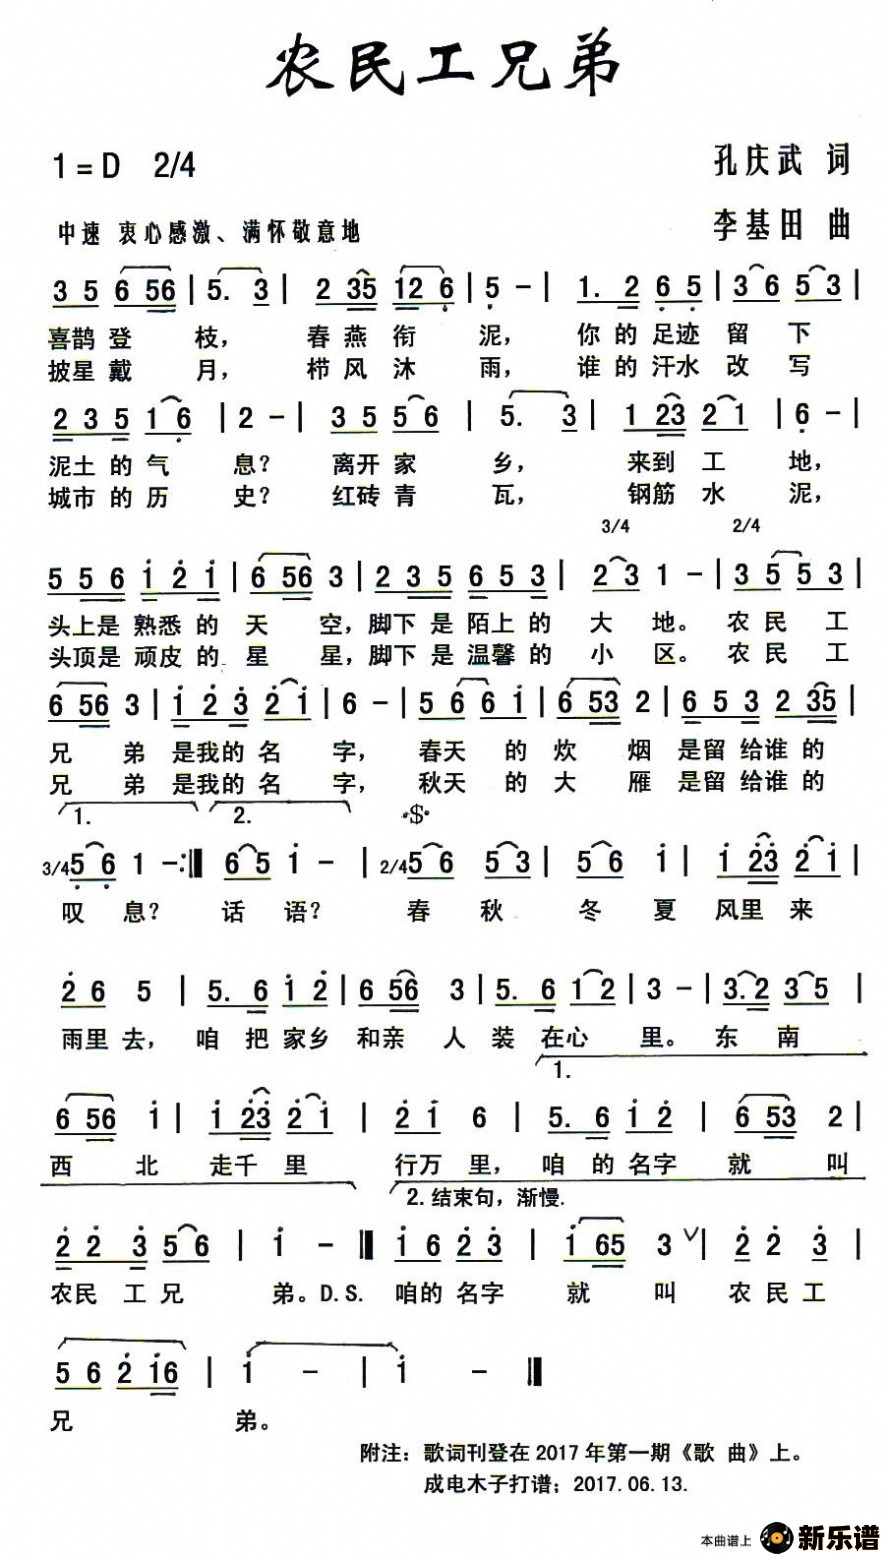 农民工兄弟
1 = D 2/4
孔庆武 词
中速 衷心感激、满怀敬意地
李基田 曲
3 5 6 56 | 5. 3 | 2 35 12 6 | 5 – | 1. 2 6 5 | 3 6 5 3 |
喜鹊 登 枝, 春 燕 衔 泥, 你 的 足迹 留 下
披星 戴 月, 栉 风 沐 雨, 谁 的 汗水 改 写
2 3 5 1 6 | 2 – | 3 5 5 6 | 5. 3 | 1 23 2 1 | 6 – |
泥土 的 气 息? 离开 家 乡, 来到 工 地,
城市 的 历 史? 红砖 青 瓦, 钢筋 水 泥,
3/4 2/4
5 5 6 i 2 i | 6 56 3 | 2 3 5 6 5 3 | 2 3 1 – | 3 5 5 3 |
头上是 熟悉 的 天 空, 脚下 是 陌上 的 大 地。 农 民 工
头顶是 顽皮 的 星 星, 脚下 是 温馨 的 小 区。 农 民 工
6 56 3 | i 2 3 2 i | 6 – | 5 6 6 i | 6 53 2 | 6 5 3 2 35 |
兄 弟 是我的 名 字, 春天 的 炊 烟 是留 给谁 的
兄 弟 是我的 名 字, 秋天 的 大 雁 是留 给谁 的
1. 2. 𝄋
3/4 5 6 1 – :‖ 6 5 i – | 2/4 5 6 5 3 | 5 6 i | i 23 2 i |
叹 息? 话 语? 春 秋 冬 夏 风里 来
2 6 5 | 5. 6 i 2 | 6 56 3 | 5. 6 1 2 | 3 – | 3. 2 3 5 |
雨里 去, 咱 把 家乡 和亲 人 装 在心 里。 东 南
1.
6 56 i | i 23 2 i | 2 i 6 | 5. 6 i 2 | 6 53 2 |
西 北 走千 里 行万 里, 咱 的 名字 就 叫
2. 结束句, 渐慢.
2 2 3 5 6 | i – ‖ i 6 2 3 | i 65 3 ∨ | 2 2 3 |
农民 工 兄 弟。D.S. 咱的 名字 就 叫 农 民 工
5 6 2 i6 | i – | i – ‖
兄 弟。
附注: 歌词刊登在 2017 年第一期《歌 曲》上。
成电木子打谱; 2017.06.13.
本曲谱上 新乐谱